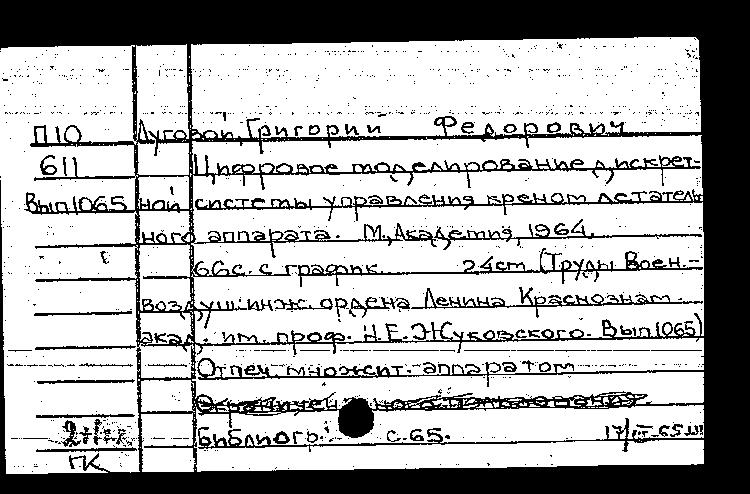 П10 Луговой, Григорий Федорович
611 Цифровое моделирование дискрет-
Вып1065 ной системы управления креном летатель
ного аппарата. М., Академия, 1964.
66с. с график. 24cm (Труды Воен.-
воздуш. инж. ордена Ленина Краснознам.
акад. им. проф. Н.Е. Жуковского. Вып 1065)
Отпеч. множит. аппаратом
Библиогр.: с.65.
ГК